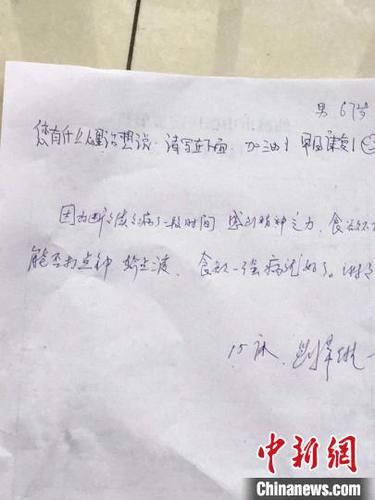 男 67岁
您有什么心里话想说，请写在下面，加油！早日康复！
因为断断续续病了一段时间，感到精神乏力，食欲不
能否打点针 输点液，食欲一强病就好了。谢谢
15床
中新网
www.chinanews.com